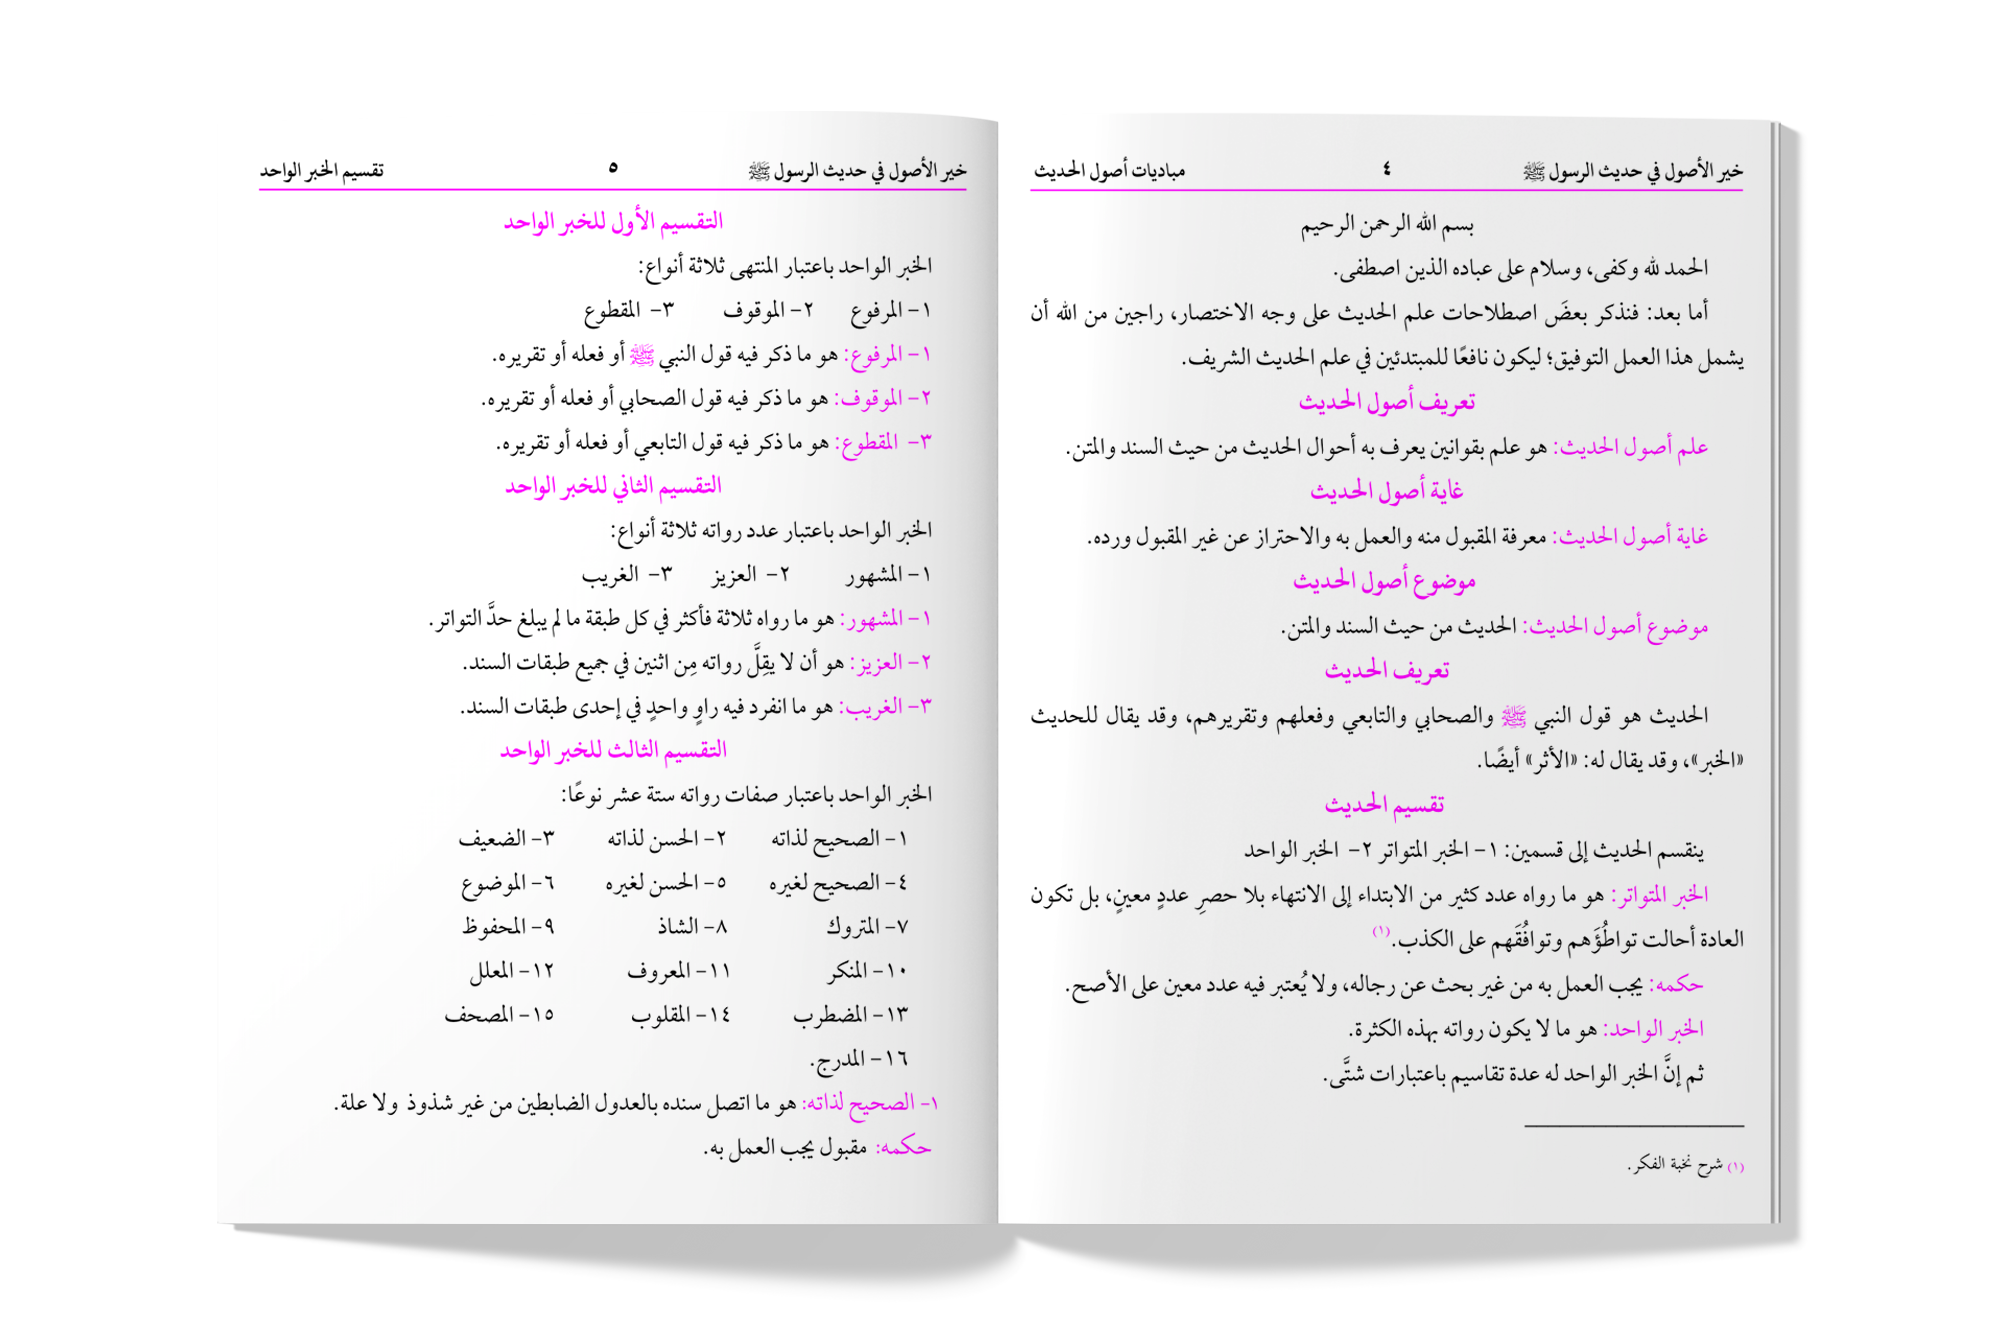 خير الأصول في حديث الرسول ﷺ ٤ مباديات أصول الحديث
بسم الله الرحمن الرحيم
الحمد لله وكفى، وسلام على عباده الذين اصطفى.
أما بعد: فنذكر بعضَ اصطلاحات علم الحديث على وجه الاختصار، راجين من الله أن
يشمل هذا العمل التوفيق؛ ليكون نافعًا للمبتدئين في علم الحديث الشريف.
تعريف أصول الحديث
علم أصول الحديث: هو علم بقوانين يعرف به أحوال الحديث من حيث السند والمتن.
غاية أصول الحديث
غاية أصول الحديث: معرفة المقبول منه والعمل به والاحتراز عن غير المقبول ورده.
موضوع أصول الحديث
موضوع أصول الحديث: الحديث من حيث السند والمتن.
تعريف الحديث
الحديث هو قول النبي ﷺ والصحابي والتابعي وفعلهم وتقريرهم، وقد يقال للحديث
«الخبر»، وقد يقال له: «الأثر» أيضًا.
تقسيم الحديث
ينقسم الحديث إلى قسمين: ١- الخبر المتواتر ٢- الخبر الواحد
الخبر المتواتر: هو ما رواه عدد كثير من الابتداء إلى الانتهاء بلا حصرِ عددٍ معينٍ، بل تكون
العادة أحالت تواطُؤَهم وتوافُقَهم على الكذب.(١)
حكمه: يجب العمل به من غير بحث عن رجاله، ولا يُعتبر فيه عدد معين على الأصح.
الخبر الواحد: هو ما لا يكون رواته بهذه الكثرة.
ثم إنَّ الخبر الواحد له عدة تقاسيم باعتبارات شتَّى.
(١) شرح نخبة الفكر.
خير الأصول في حديث الرسول ﷺ ٥ تقسيم الخبر الواحد
التقسيم الأول للخبر الواحد
الخبر الواحد باعتبار المنتهى ثلاثة أنواع:
١- المرفوع ٢- الموقوف ٣- المقطوع
١- المرفوع: هو ما ذكر فيه قول النبي ﷺ أو فعله أو تقريره.
٢- الموقوف: هو ما ذكر فيه قول الصحابي أو فعله أو تقريره.
٣- المقطوع: هو ما ذكر فيه قول التابعي أو فعله أو تقريره.
التقسيم الثاني للخبر الواحد
الخبر الواحد باعتبار عدد رواته ثلاثة أنواع:
١- المشهور ٢- العزيز ٣- الغريب
١- المشهور: هو ما رواه ثلاثة فأكثر في كل طبقة ما لم يبلغ حدَّ التواتر.
٢- العزيز: هو أن لا يقِلَّ رواته مِن اثنين في جميع طبقات السند.
٣- الغريب: هو ما انفرد فيه راوٍ واحدٍ في إحدى طبقات السند.
التقسيم الثالث للخبر الواحد
الخبر الواحد باعتبار صفات رواته ستة عشر نوعًا:
١- الصحيح لذاته ٢- الحسن لذاته ٣- الضعيف
٤- الصحيح لغيره ٥- الحسن لغيره ٦- الموضوع
٧- المتروك ٨- الشاذ ٩- المحفوظ
١٠- المنكر ١١- المعروف ١٢- المعلل
١٣- المضطرب ١٤- المقلوب ١٥- المصحف
١٦- المدرج.
١- الصحيح لذاته: هو ما اتصل سنده بالعدول الضابطين من غير شذوذ ولا علة.
حكمه: مقبول يجب العمل به.